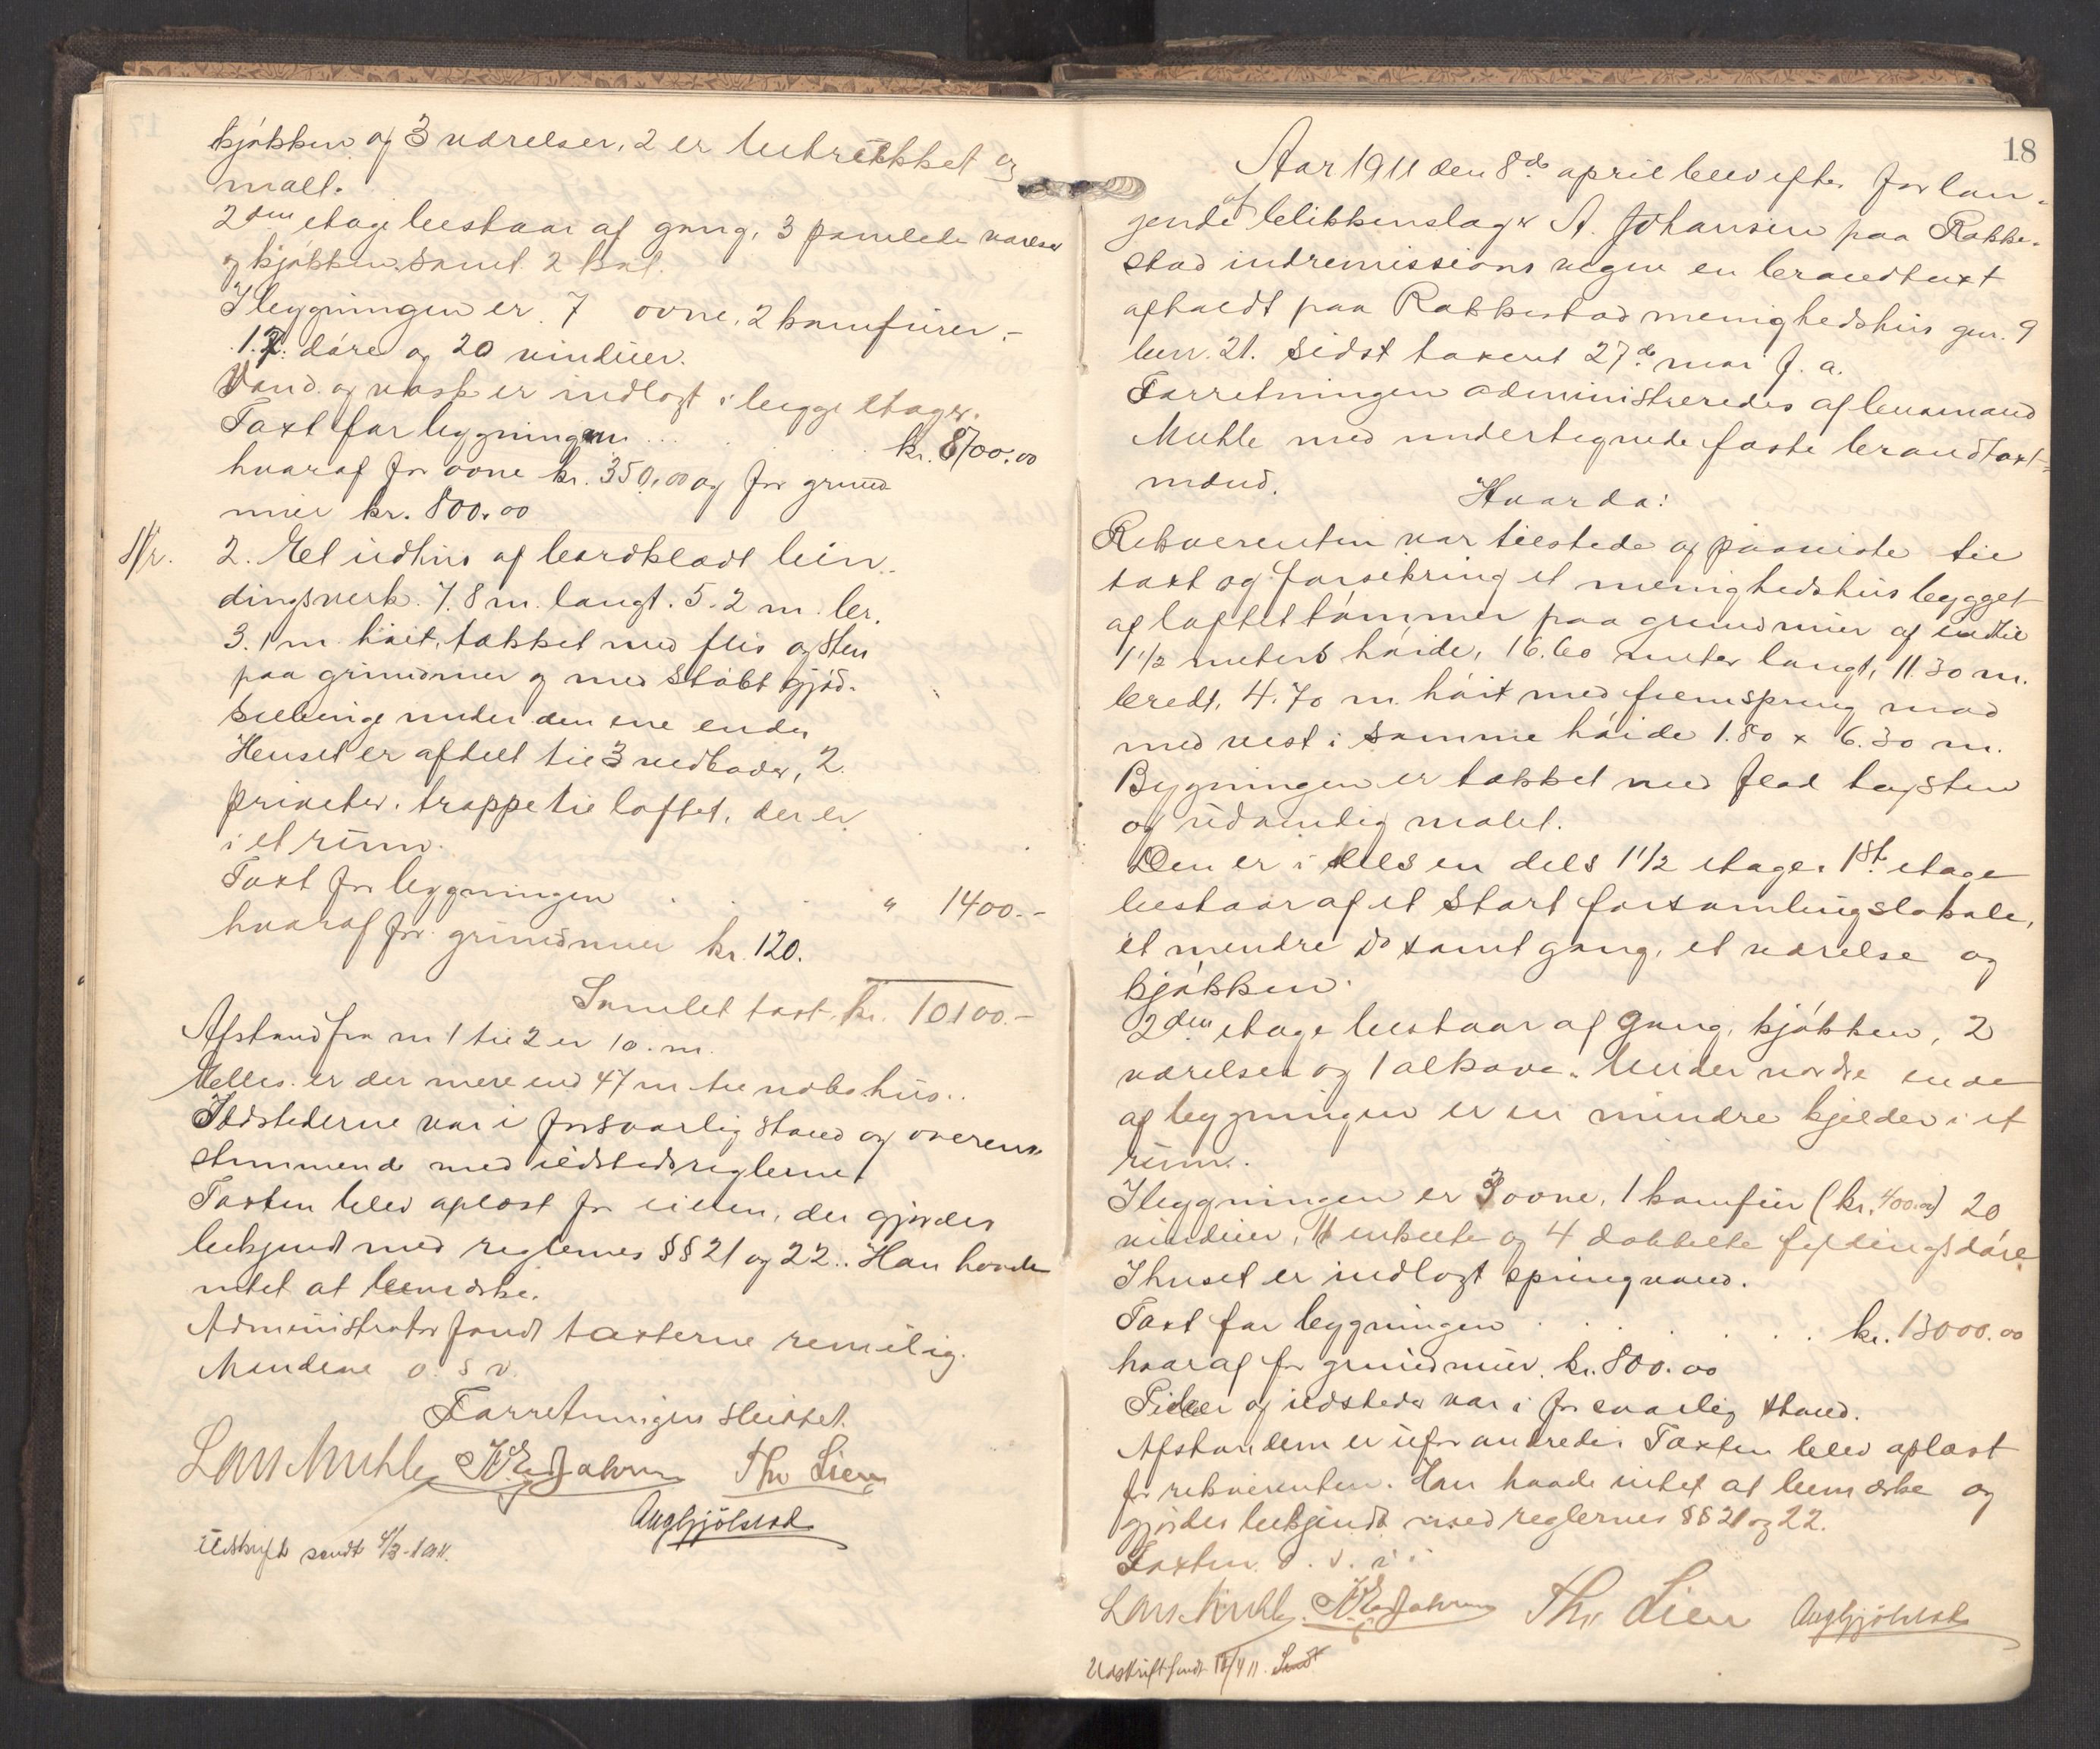 kjøkken og 3 værelser, 2 er betrækket og
malt.
2den etage bestaar af gang, 3 panelede værelser
og kjøkken samt 2 kot.
I bygningen er 7 ovne, 2 komfurer,
12 døre og 20 vinduer.
Vand og vask er indlagt i begge etager.
Taxt for bygningen . . . kr. 8700.00
hvoraf for ovne kr. 350,00 og for grund
mur kr. 800.00
Nr. 2. Et udhus af bordklædt bin-
dingsverk 7.8 m. langt. 5.2 m. br.
3.1 m høit, tækket med flis og sten
paa grundmur og med støbt gjød-
selbinge under den ene ende.
Huset er afdelt til 3 vedboder, 2
priveter, trappe til loftet, der er
i et rum.
Taxt for bygningen . . . " 1400.-
hvoraf for grundmur kr. 120.
Samlet taxt kr. 10100.-
Afstand fra nr 1 til 2 er 10. m.
Elles er der mere end 47 m til nabohus.
Ildstederne var i forsvarlig stand og overens-
stemmende med ildstedsreglerne
Taxten blev oplæst for eieren, der gjordes
bekjendt med reglernes §§ 21 og 22. Han havde
intet at bemerke.
Administrator fandt taxterne rimelig.
Mændene o. s. v.
Forretningen sluttet.
Lars Muhle Th. Lien
Aug Gjølstad
Udskrift sendt 4/3-1911.
18
Aar 1911 den 8de april blev efter forlan-
gende af blikkenslager A. Johansen paa Rakke-
stad indremissions vegne en brandtaxt
afholdt paa Rakkestad menighedshus gnr. 9
bnr. 21. sidst taxeret 27de mai f. a.
Forretningen administreredes af lensmand
Muhle med undertegnede faste brandtaxt-
mænd.
Hvorda:
Rekverenten var tilstede og paaviste til
taxt og forsikring et menighedshus bygget
af laftet tømmer paa grundmur af indtil
1 1/2 meters høide, 16.60 meter langt, 11.30 m.
bredt, 4.70 m. høit med fremspring mod
med vest i samme høide 1.80 x 6.30 m.
Bygningen er tækket med flad tagsten
og udvendig malet.
Den er i dels en dels 1 1/2 etage. 1ste etage
bestaar af et stort forsamlingslokale,
et mindre do samt gang, et værelse og
kjøkken.
2den etage bestaar af gang, kjøkken, 2
værelser og 1 alkove. Under nordre ende
af bygningen er en mindre kjelder i et
rum.
I bygningen er 3 ovne, 1 komfur (kr. 400.00) 20
vinduer, 11 enkelte og 4 dobbelte fyldingsdøre
I huset er indlagt springvand.
Taxt for bygningen . . . . . . kr. 13000.00
hvoraf for grundmur kr. 800.00
Piber og ildsteder var i forsvarlig stand.
Afstandene er uforandrede. Taxten blev oplæst
for rekvirenten. Han havde intet at bemerke og
gjordes bekjendt med reglernes §§ 21 og 22.
Taxten o. s. v.
Lars Muhle Th. Lien Aug Gjølstad
Udskrift sendt 18/4 11.